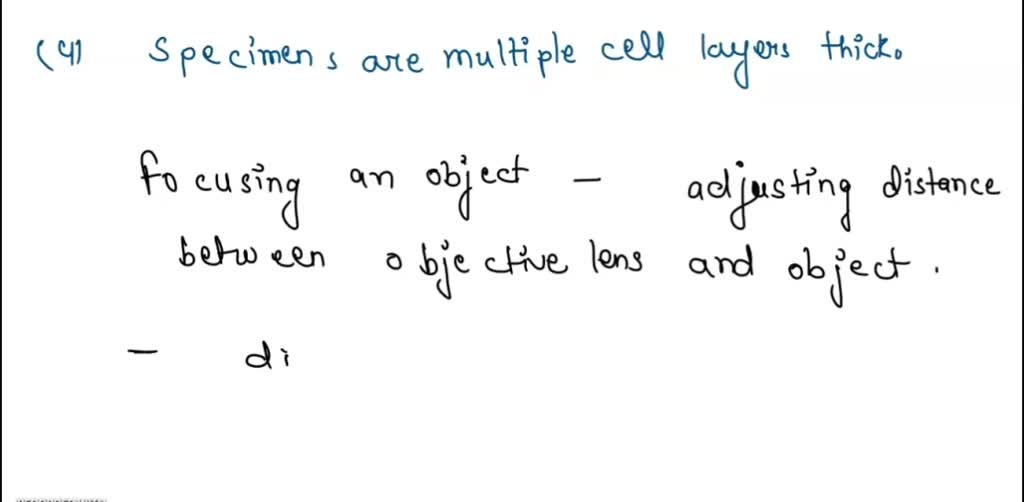 (4) Specimens are multiple cell layers thick.
focusing an object - adjusting distance
between objective lens and object.
- di